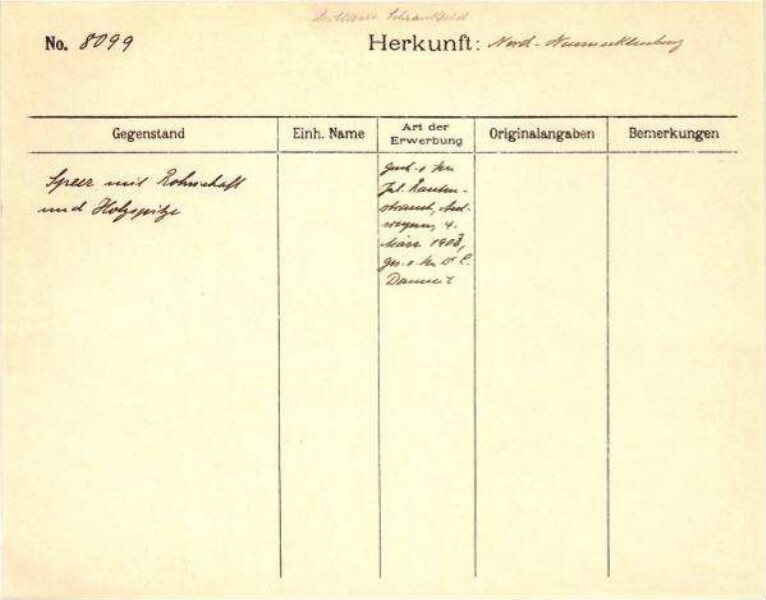 No. 8099
Herkunft: Nord-Neumecklenburg
Gegenstand
Einh. Name
Art der
Erwerbung
Originalangaben
Bemerkungen
Speer mit Rohrschaft
und Holzspitze
Jul. Rauten-
strauch,
4.
März 1903,
ges. v. Hn Dr E.
Danneil